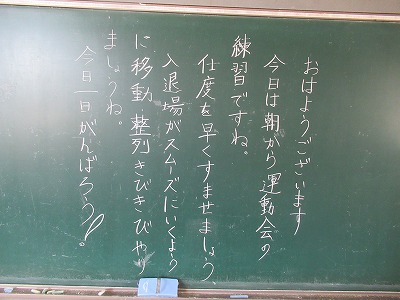 おはようございます
今日は朝から運動会の
練習ですね。
仕度を早くすませましょう
入退場がスムーズにいくよう
に移動 整列きびきびやり
ましょうね。
今日一日がんばろう!。